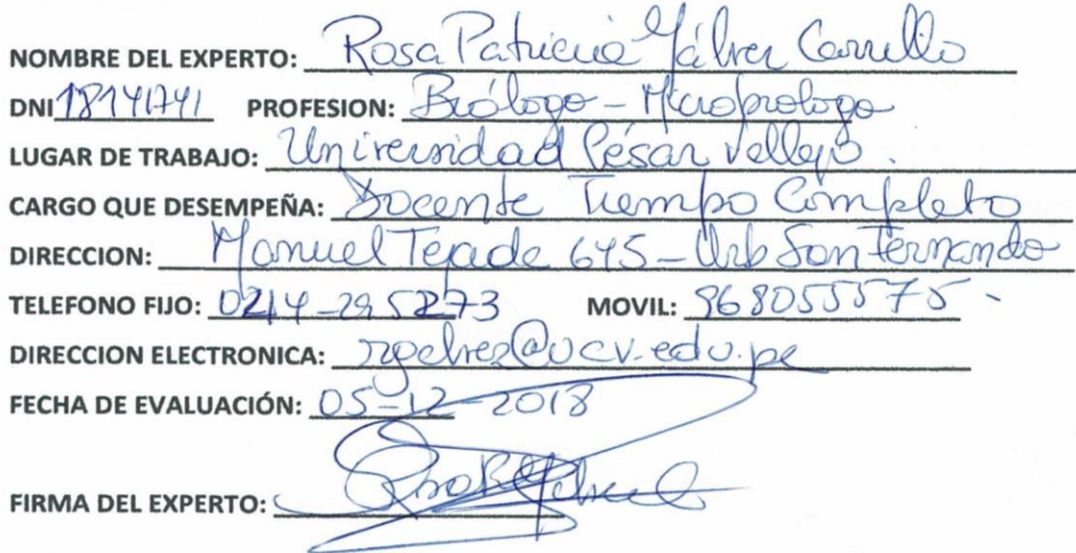 NOMBRE DEL EXPERTO: Rosa Patricia Gálvez Carrillo
DNI 18141741 PROFESION: Biólogo - Microbiologo
LUGAR DE TRABAJO: Universidad César Vallejo.
CARGO QUE DESEMPEÑA: Docente Tiempo Completo
DIRECCION: Manuel Tejada 645 - Urb San Fernando
TELEFONO FIJO: MOVIL: 968055575 -
DIRECCION ELECTRONICA: rgalvez@ucv.edu.pe
FECHA DE EVALUACIÓN: 05-12-2018
FIRMA DEL EXPERTO: